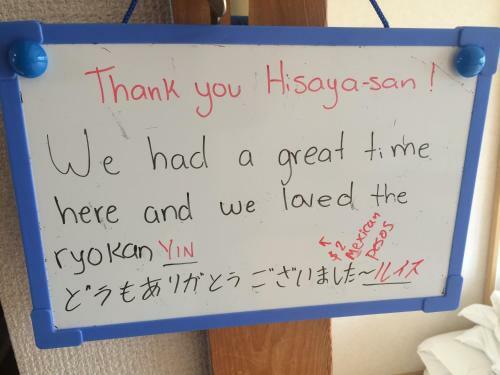 Thank you Hisaya-san!
We had a great time
here and we loved the
ryokan YIN
↑
$2
Mexican
pesos
どうもありがとうございました〜ルイス